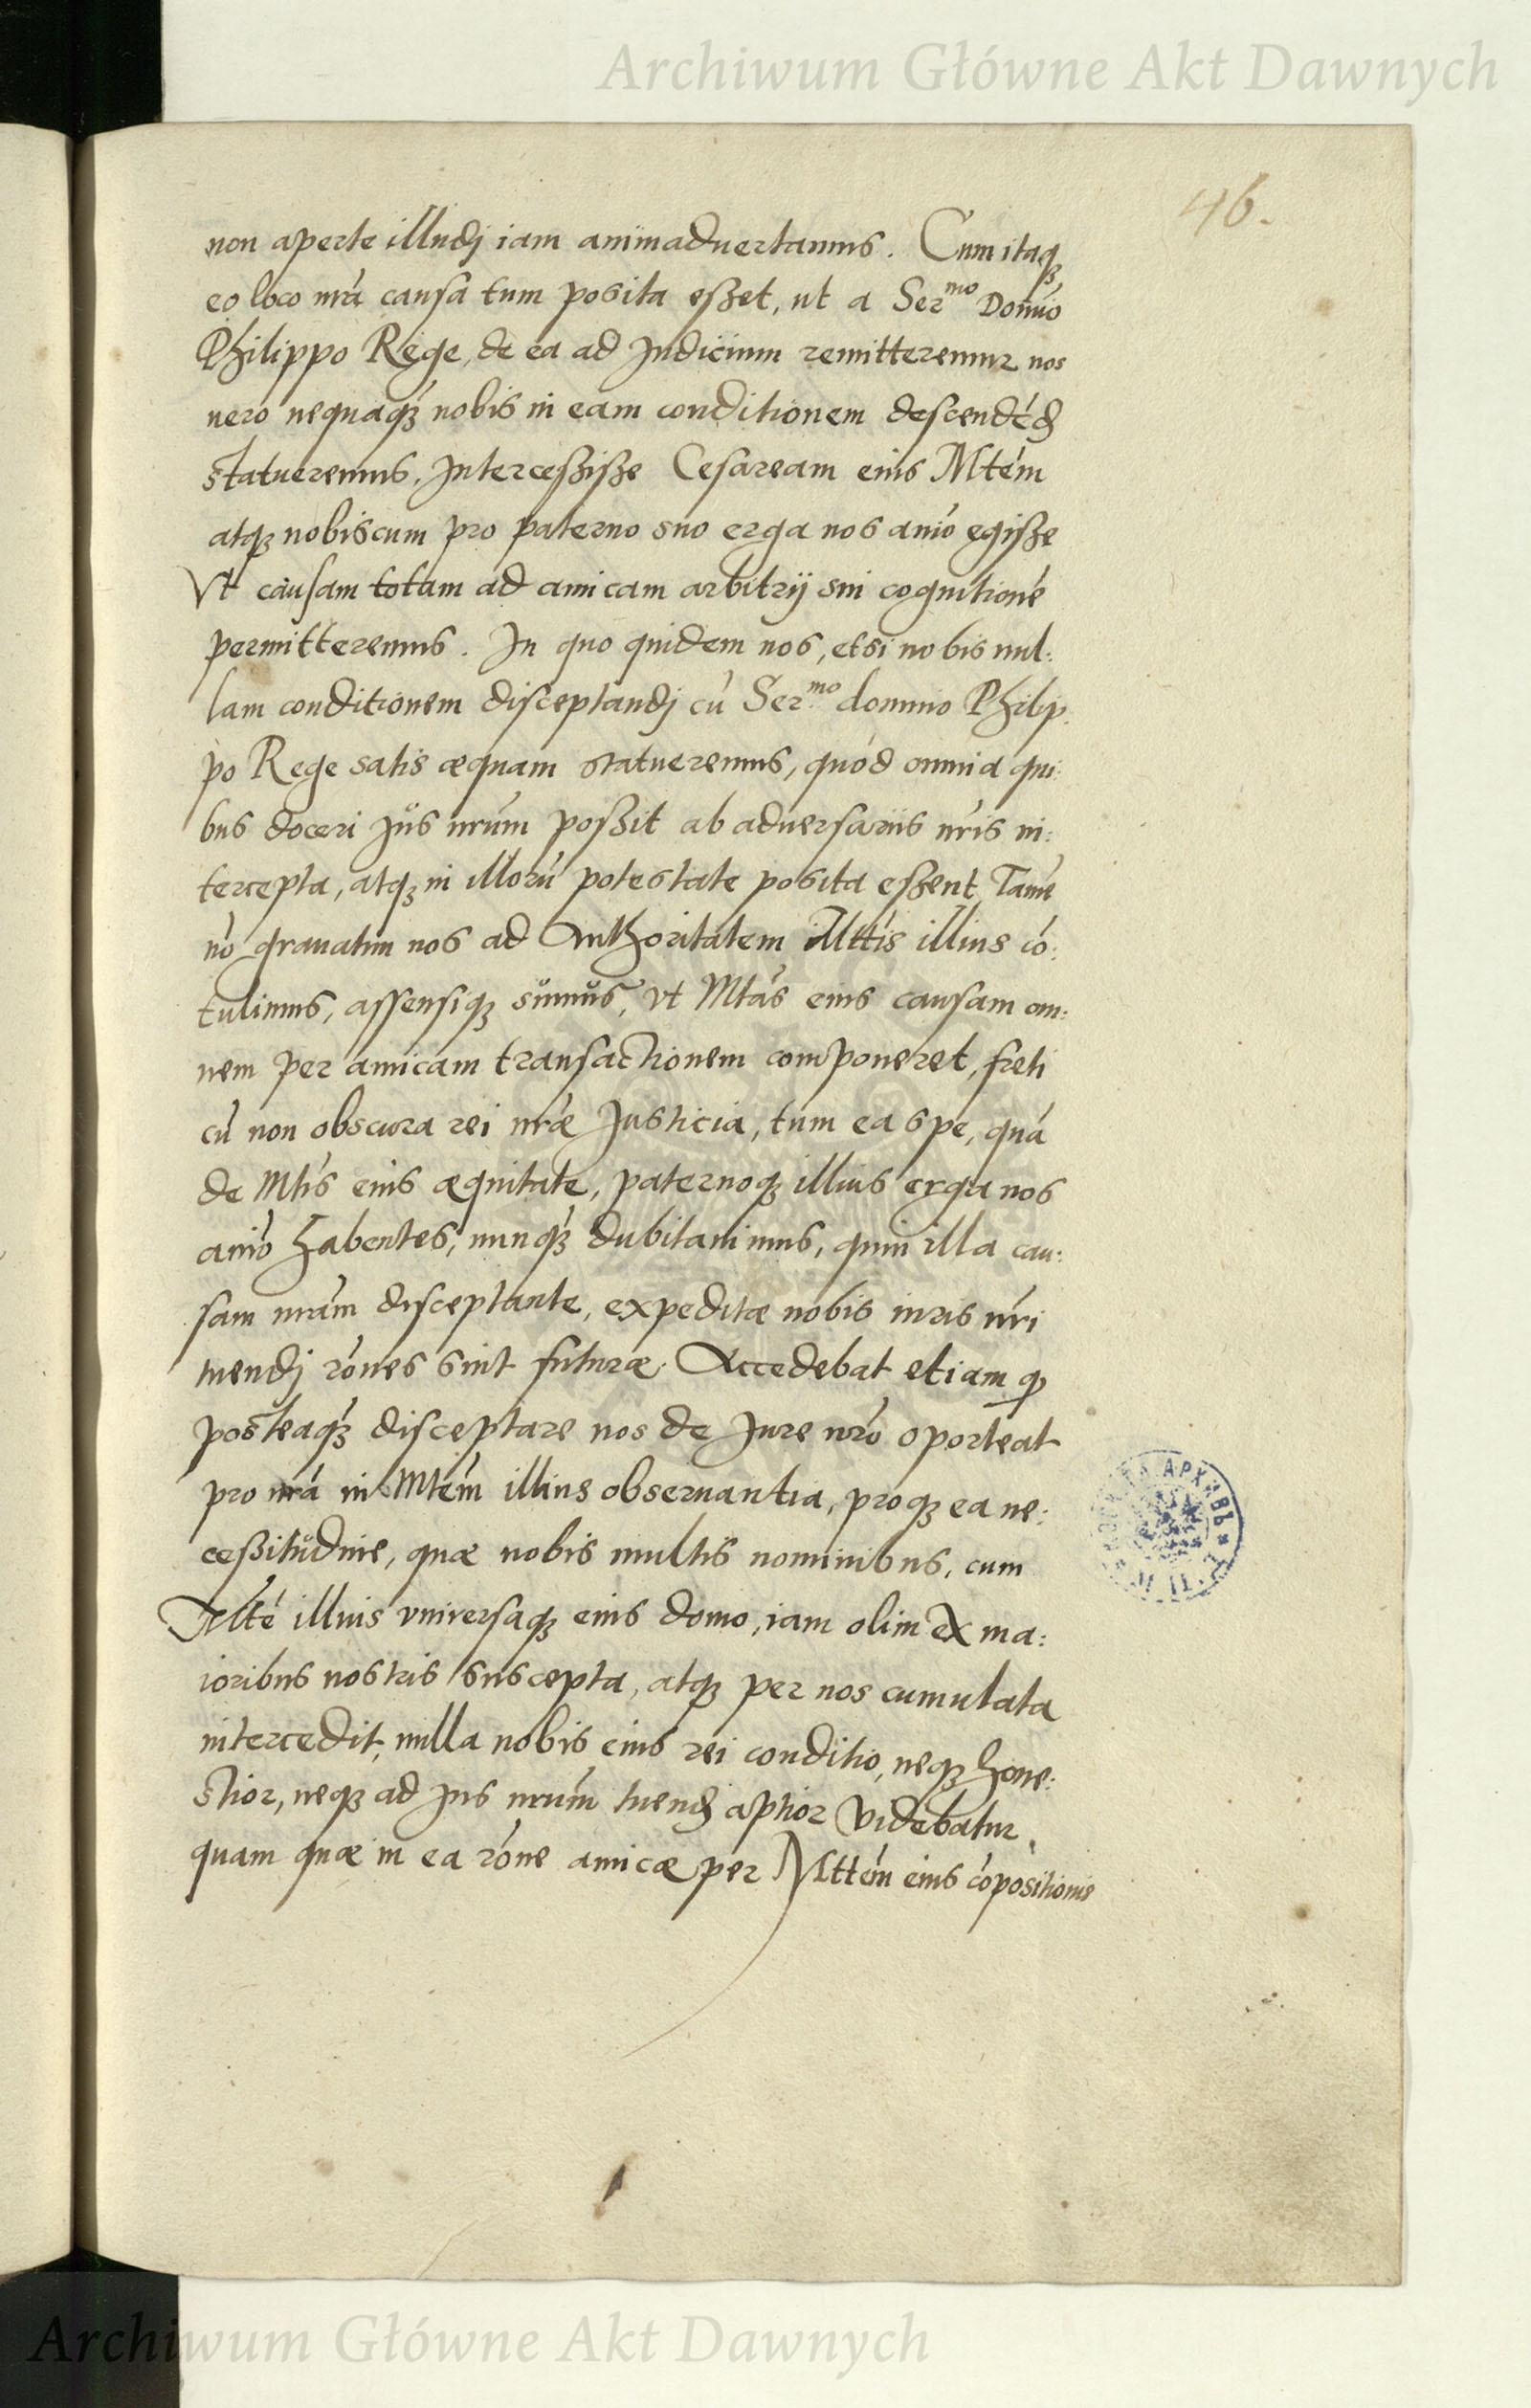 Archiwum Główne Akt Dawnych
46.
non aperte illudj iam animaduertamus. Cum itaq₃
eo loco nrá causa tum posita eßet, ut a Ser.mo Domĩo
Philippo Rege, de ea ad Judicium remitteremur nos
uero nequaq̃ nobis in eam conditionem descendẽd
statueremus, Interceßiße Cesaream eius Mtém
atq₃ nobiscum pro paterno suo erga nos anío egiße
Vt causam totam ad amicam arbitrij sui cognitioné
permitteremus. In quo quidem nos, etsi nobis nul:
lam conditionem disceptandj cú Ser.mo domino Philip:
po Rege satis æquam statueremus, quód omnia qui:
bus doceri Jus nrúm poßit ab aduersariis nrís in:
tercepta, atq₃ in illorú potestate posita eßent, Tamé
nó grauatim nos ad Authoritatem Mttís illius có:
tulimus, assensiq₃ sumus, vt Mtás eius causam om:
nem per amicam transactionem componeret, freti
cú non obscura rei nrǽ Justicia, tum ea spe, quá
de Mtís eius æquitate, paternoq₃ illius erga nos
anío habentes, nunq̃ dubitauimus, quin illa cau:
sam nrám disceptante, expeditæ nobis iuris nrí
tuendj rónes sint futuræ. Accedebat etiam q̃
posteaq̃ disceptare nos de Jure nró oporteat
pro nrá in Mtém illius obseruantia, proq₃ ea ne:
ceßitudine, quæ nobis multis nominibus, cum
Mtté illius vniuersaq₃ eius domo, iam olim ex ma:
ioribus nostris suscepta, atq₃ per nos cumulata
intercedit, nulla nobis eius rei conditio, neq₃ hone:
stior, neq₃ ad Jus nrúm tuend aptior videbatur,
quam quæ in ea róne amicæ per Mttém eius cópositionis
Archiwum Główne Akt Dawnych